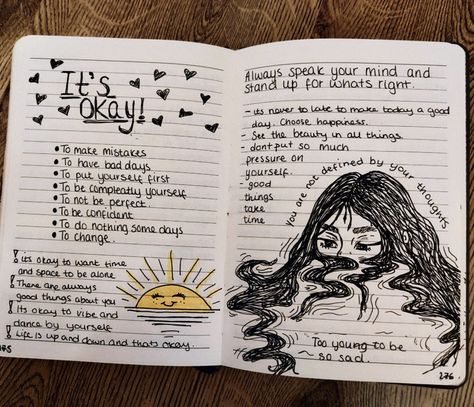 It's
Okay!
• To make mistakes
• To have bad days
• To put yourself first
• To be compleatly yourself
• To not be perfect.
• To be confident
• To do nothing some days
• To change.
! its okay to want time
and space to be alone
! There are always
good things about you
! Its okay to vibe and
dance by yourself
! Life is up and down and thats okay.
275
Always speak your mind and
stand up for whats right.
- its never to late to make today a good
day. Choose happiness.
- See the beauty in all things.
- dont put so much
pressure on
yourself.
- good
things
take
time
you are not defined by your thoughts
Too young to be
so sad.
276